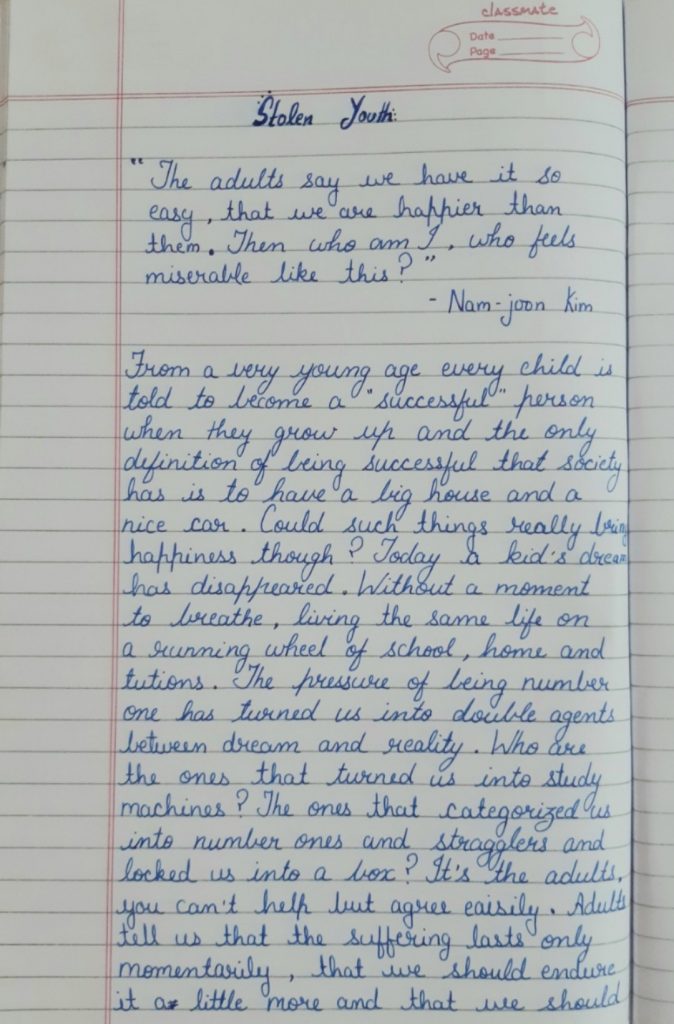 classmate
Date
Page
Stolen Youth:
"The adults say we have it so
easy, that we are happier than
them. Then who am I, who feels
miserable like this?"
- Nam-joon Kim
From a very young age every child is
told to become a "successful" person
when they grow up and the only
definition of being successful that society
has is to have a big house and a
nice car. Could such things really bring
happiness though? Today a kid's dream
has disappeared. Without a moment
to breathe, living the same life on
a running wheel of school, home and
tutions. The pressure of being number
one has turned us into double agents
between dream and reality. Who are
the ones that turned us into study
machines? The ones that categorized us
into number ones and stragglers and
locked us into a box? It's the adults,
you can't help but agree eaisily. Adults
tell us that the suffering lasts only
momentarily, that we should endure
it a little more and that we should